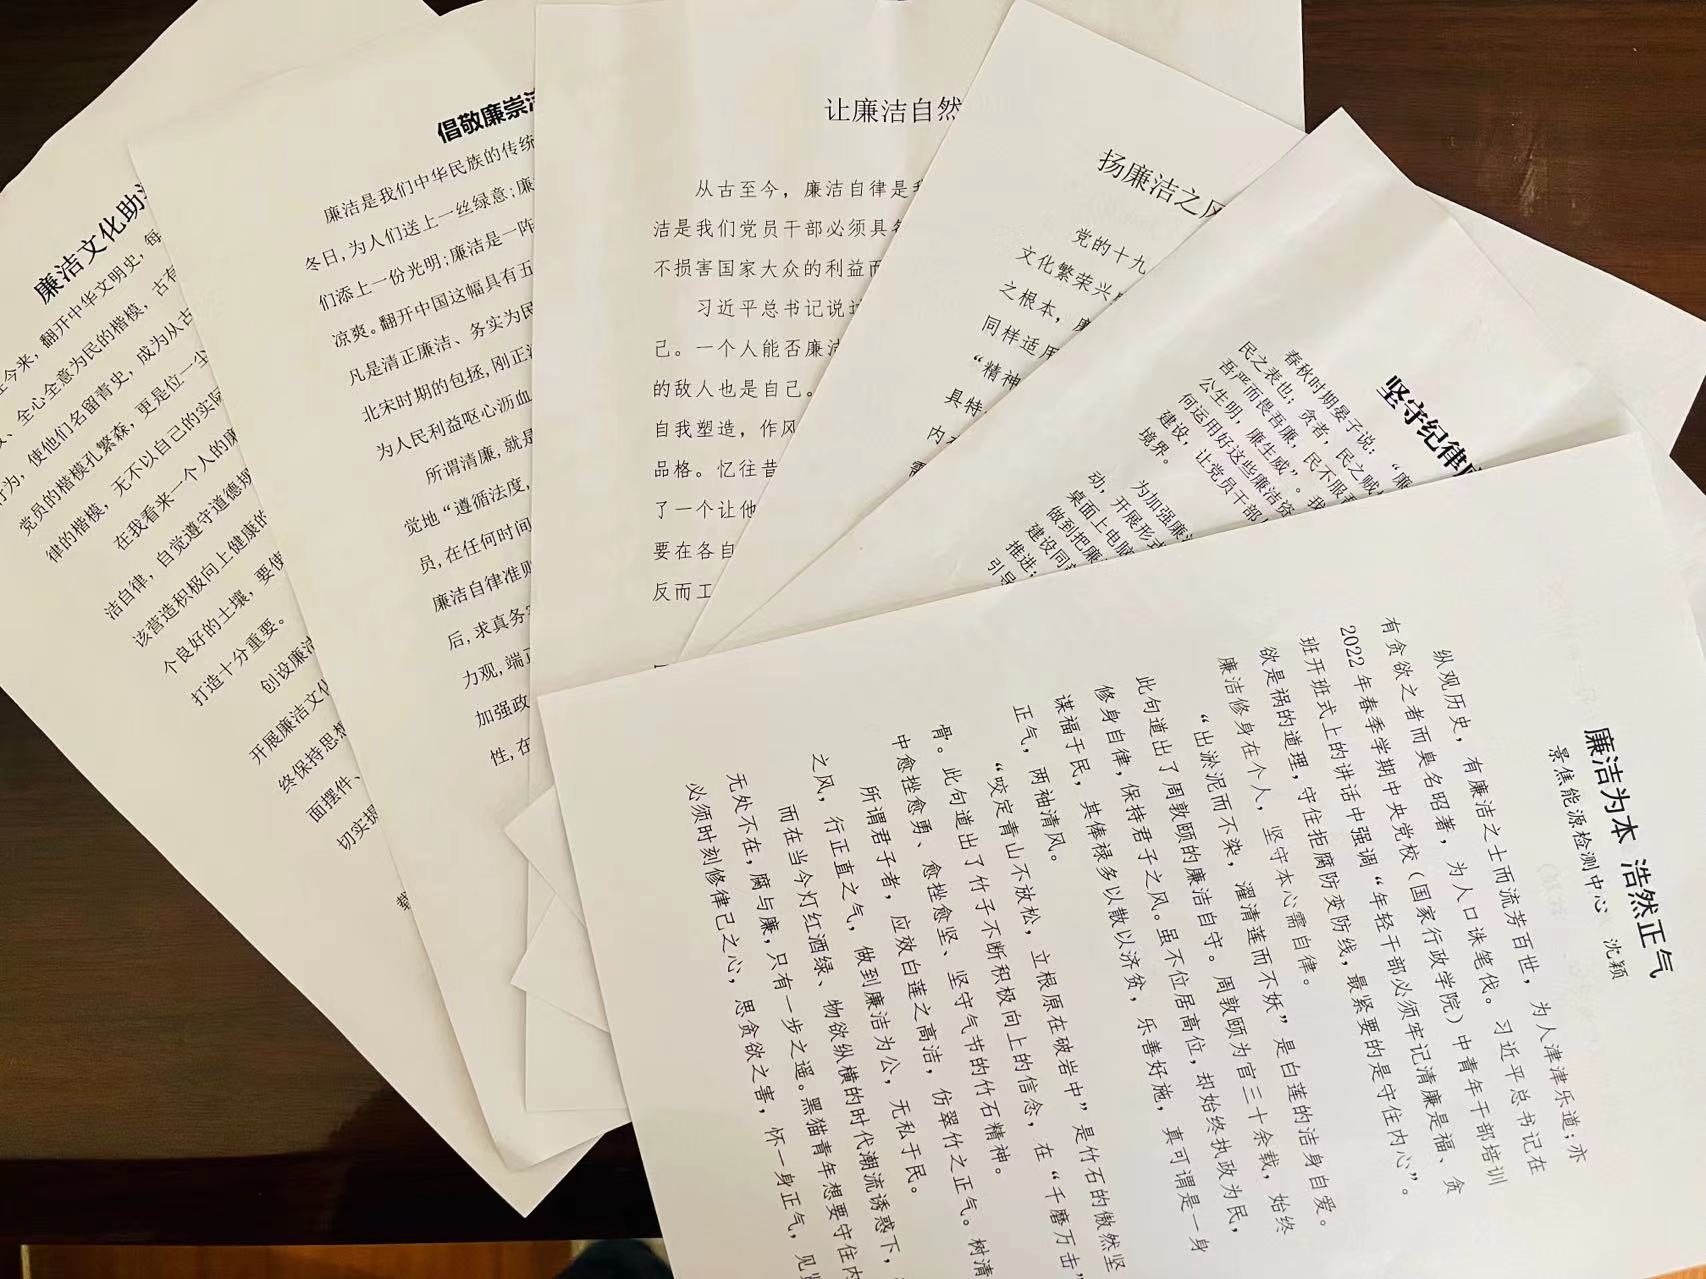 廉洁文化助
至今来，翻开中华文明史，每
、全心全意为民的楷模，古有
行为，使他们名留青史，成为从古
党员的楷模孔繁森，更是位一尘
律的楷模，无不以自己的实际
在我看来一个人的廉
洁自律，自觉遵守道德规
该营造积极向上健康的
个良好的土壤，要使
打造十分重要。
创设廉洁
开展廉洁文化
终保持思想
面摆件、
切实提
倡敬廉崇洁
廉洁是我们中华民族的传统
冬日，为人们送上一丝绿意；廉
们添上一份光明；廉洁是一阵
凉爽。翻开中国这幅具有五
凡是清正廉洁、务实为民
北宋时期的包拯，刚正
为人民利益呕心沥血
所谓清廉，就是
觉地“遵循法度，
员，在任何时间
廉洁自律准则
后，求真务实
力观，端正
加强政
性，在
让廉洁自然
从古至今，廉洁自律是我
洁是我们党员干部必须具备
不损害国家大众的利益而
习近平总书记说过
己。一个人能否廉洁
的敌人也是自己。
自我塑造，作风
品格。忆往昔
了一个让他
要在各自
反而工
扬廉洁之风
党的十九
文化繁荣兴
之根本，廉
同样适用
“精神
具特
内
坚守纪律底
春秋时期晏子说：“廉
民之表也；贪者，民之贼
吾严而畏吾廉，民不服
公生明，廉生威”。我
何运用好这些廉洁资
建设，让党员干部
境界。
为加强廉
动，开展形式
桌面上电脑
做到把廉
建设同
推进；
引导
廉洁为本 浩然正气
景焦能源检测中心 沈颖
纵观历史，有廉洁之士而流芳百世，为人津津乐道；亦
有贪欲之者而臭名昭著，为人口诛笔伐。习近平总书记在
2022年春季学期中央党校（国家行政学院）中青年干部培训
班开班式上的讲话中强调“年轻干部必须牢记清廉是福、贪
欲是祸的道理，守住拒腐防变防线，最紧要的是守住内心”。
廉洁修身在个人，坚守本心需自律。
“出淤泥而不染，濯清莲而不妖”是白莲的洁身自爱。
此句道出了周敦颐的廉洁自守。周敦颐为官三十余载，始终
修身自律，保持君子之风。虽不位居高位，却始终执政为民，
谋福于民，其俸禄多以散以济贫，乐善好施，真可谓是一身
正气，两袖清风。
“咬定青山不放松，立根原在破岩中”是竹石的傲然坚
骨。此句道出了竹子不断积极向上的信念，在“千磨万击”
中愈挫愈勇、愈挫愈坚、坚守气节的竹石精神。
所谓君子者，应效白莲之高洁，仿翠竹之正气。树清
之风，行正直之气，做到廉洁为公，无私于民。
而在当今灯红酒绿、物欲纵横的时代潮流诱惑下，
无处不在，腐与廉，只有一步之遥。黑猫青年想要守住内
必须时刻修律己之心，思贪欲之害，怀一身正气，见